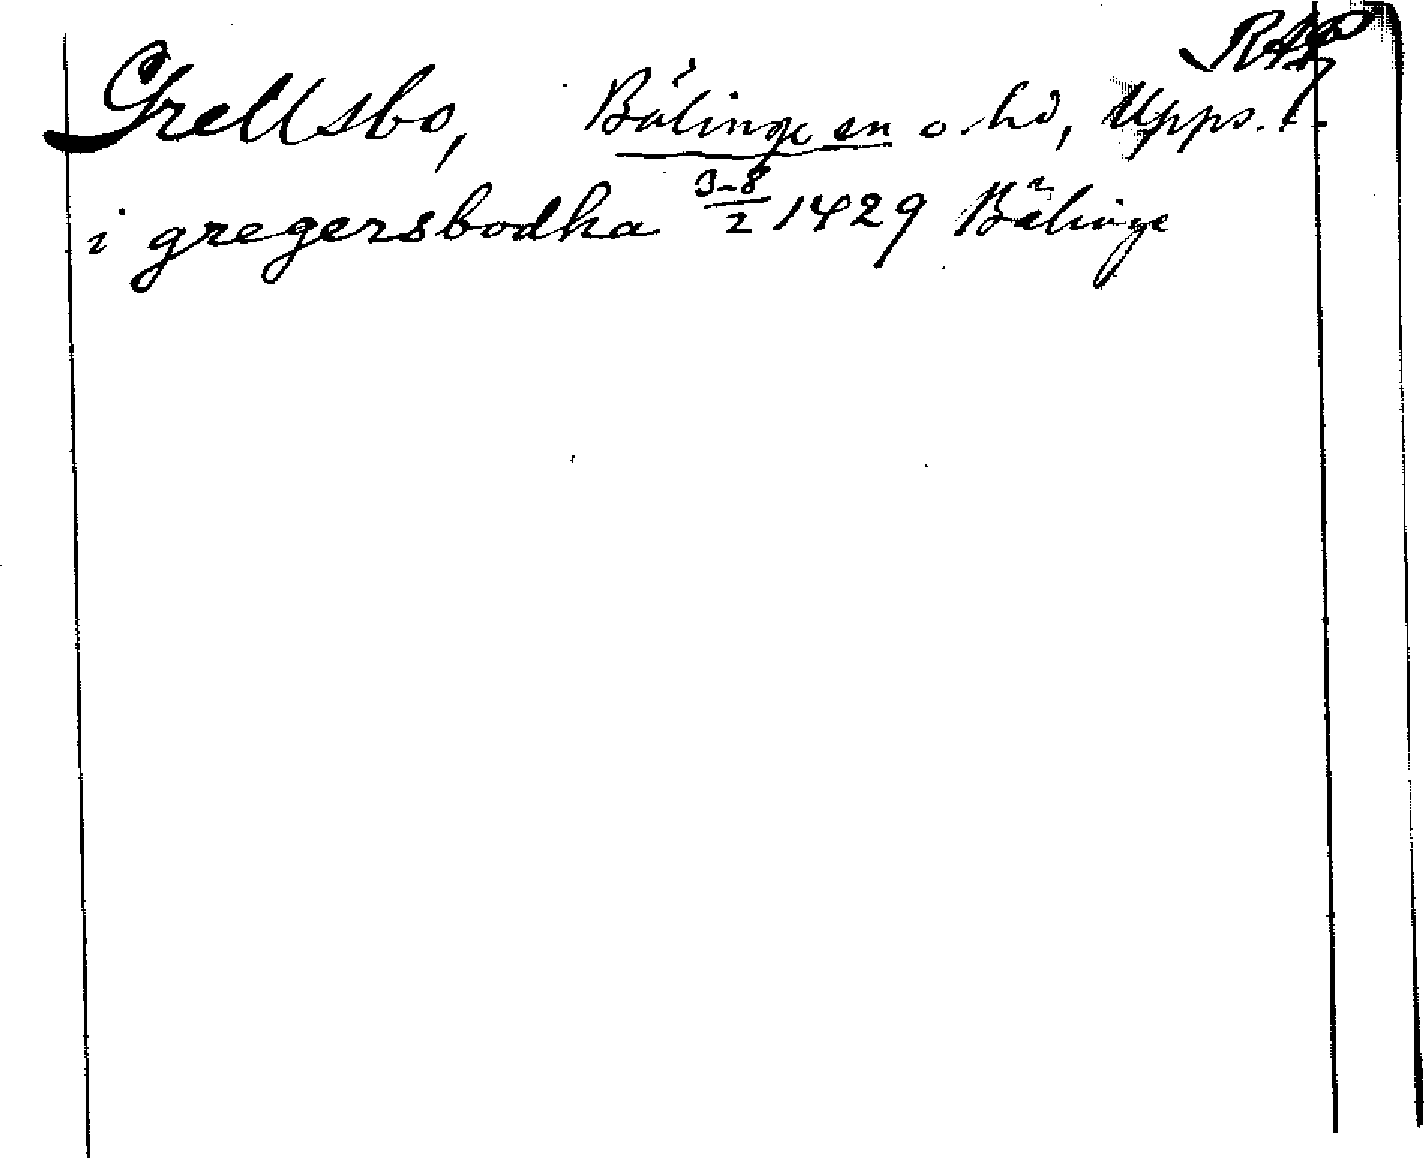 Grellsbo, Bälinge sn o. hd, Upps. l.
i gregersbodha 3-8/2 1429 Bälinge